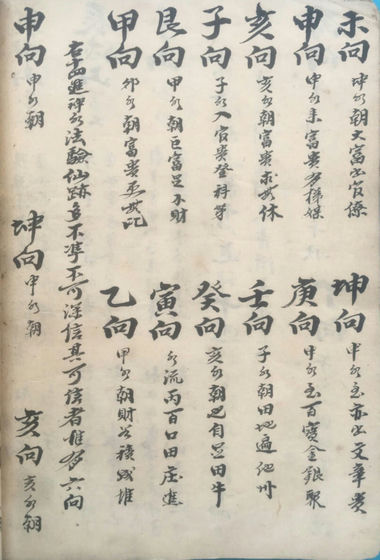 未向 坤水朝大富出官僚
坤向 申水至亦出文章貴
申向 坤水來富貴多
庚向 申水至百寶金銀聚
亥向 亥水朝富貴求無休
壬向 子水朝田地遍他州
子向 子水入官貴登科第
癸向 亥水朝巴自足田牛
艮向 甲水朝巨富足小財
寅向 水流丙百口田庄進
甲向 卯水朝富貴
乙向 甲水朝財谷積成堆
右十四進神水法驗仙跡多不準不可深信其可信者惟有六向
申向 申水朝
坤向 申水朝
亥向 亥水朝